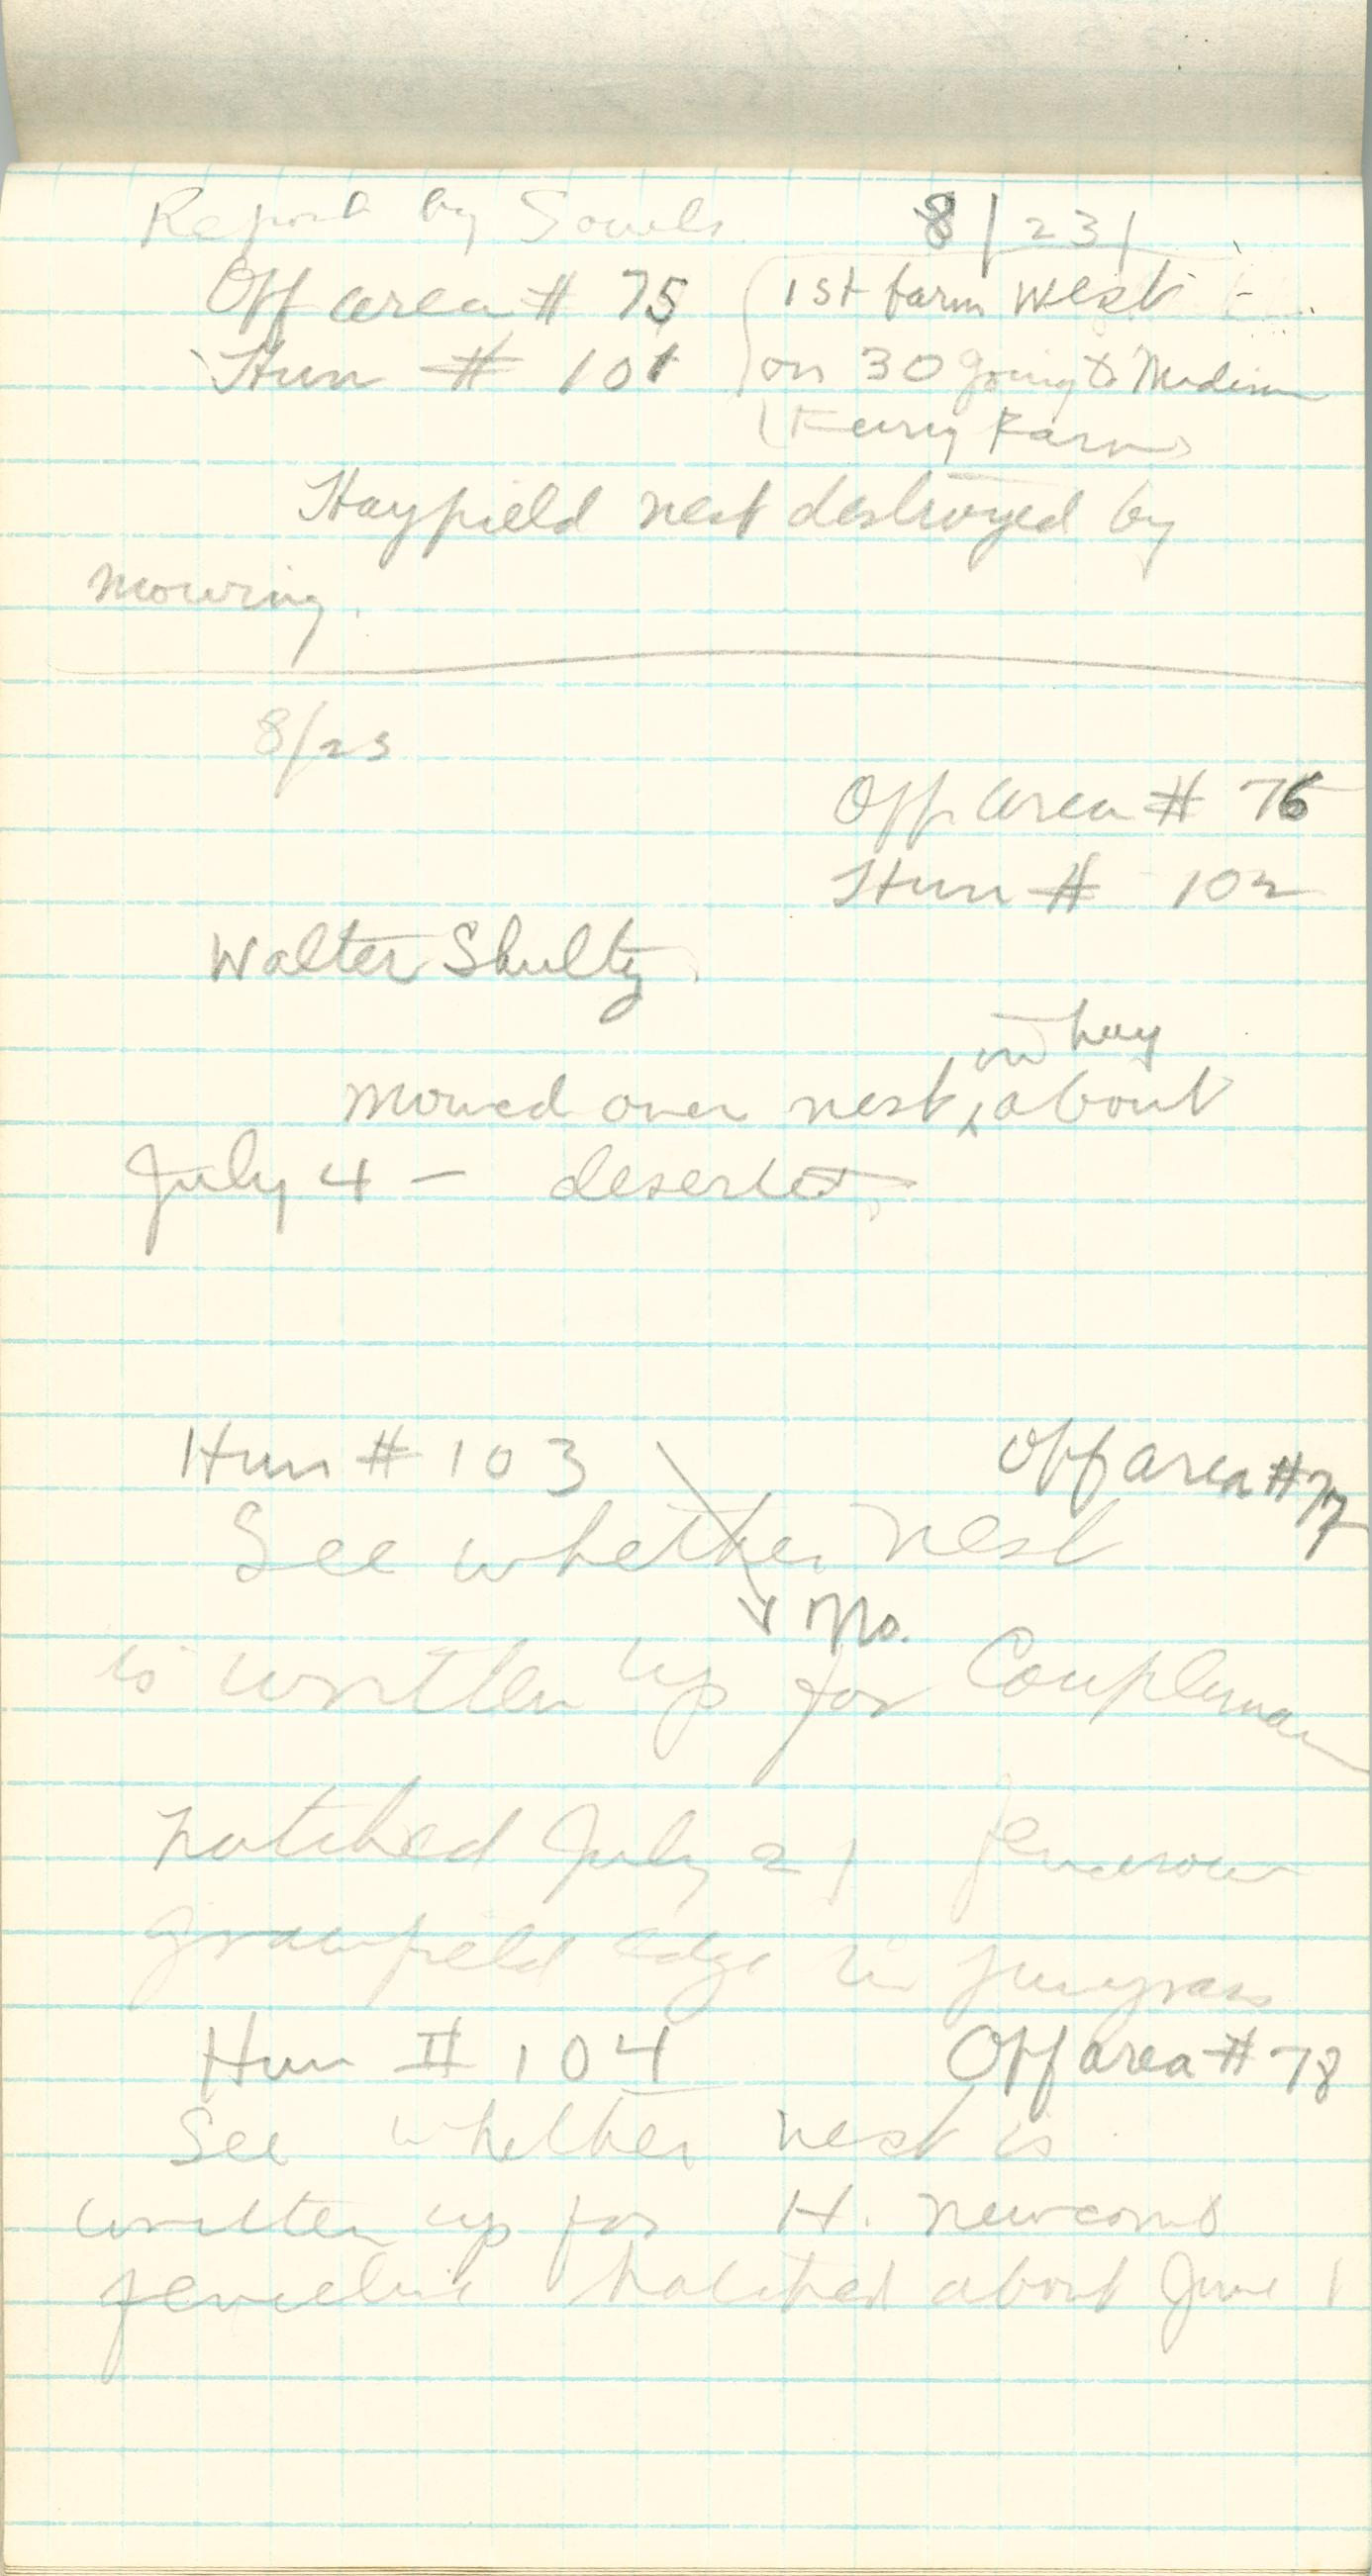 Report by Sowls. 8/23/
Off area # 75 1st farm west
Hun # 101 on 30 going to Madison
Farm
Hayfield nest destroyed by
mowing.
8/23
Off area # 76
Hun # 102
Walter Shultz.
in hay
mowed over nest, about
July 4 – deserted.
Hun # 103 Off area # 77
See whether nest
No.
is written up for Coupleman
hatched July 21 fencerow
grainfield edge in Junegrass
Hun # 104 Off area # 78
See whether nest is
written up for H. Newcomb
fenceline hatched about June 1